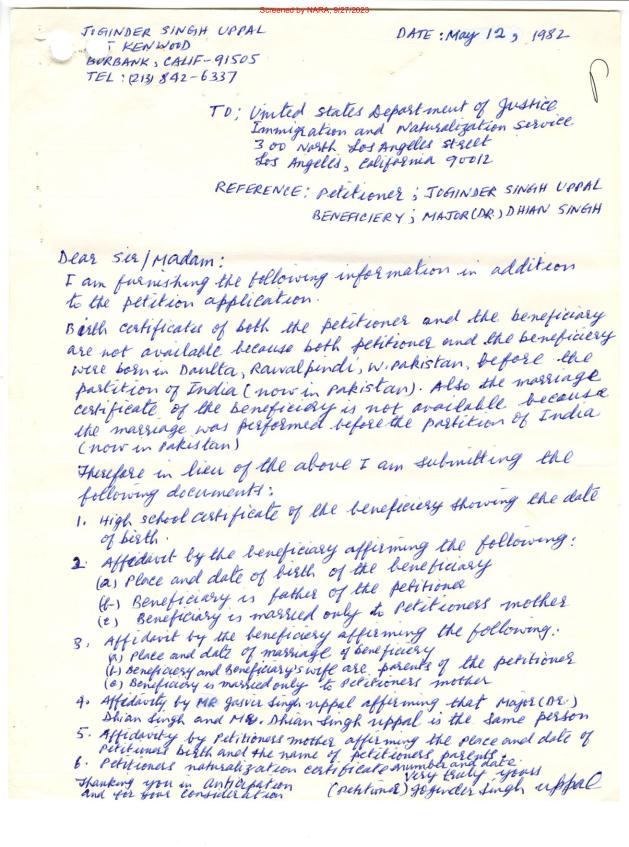 Screened by NARA, 9/27/2023
JOGINDER SINGH UPPAL
KENWOOD
BURBANK, CALIF-91505
TEL: (213) 842-6337
DATE: May 12, 1982
TO; United States Department of Justice
Immigration and Naturalization Service
300 North Los Angeles Street
Los Angeles, California 90012
REFERENCE: Petitioner; JOGINDER SINGH UPPAL
BENEFICIERY; MAJOR(DR.) DHIAN SINGH
Dear Sir/Madam:
I am furnishing the following information in addition
to the petition application.
Birth certificates of both the petitioner and the beneficiary
are not available because both petitioner and the beneficiery
were born in Daulta, Rawalpindi, W. Pakistan, before the
partition of India (now in Pakistan). Also the marriage
certificate of the beneficiary is not available because
the marriage was performed before the partition of India
(now in Pakistan)
Therefore in lieu of the above I am submitting the
following documents:
1. High school certificate of the beneficiery showing the date
of birth.
2. Affidavit by the beneficiary affirming the following:
(a) Place and date of birth of the beneficiary
(b) Beneficiary is father of the petitioner
(c) Beneficiary is married only to Petitioners mother
3. Affidavit by the beneficiery affirming the following:
(a) Place and date of marriage of beneficiery
(b) Beneficiery and Beneficiary's wife are parents of the petitioner
(c) Beneficiary is married only to Petitioners mother
4. Affidavity by MR Jasvir Singh Uppal affirming that Major (Dr.)
Dhian Singh and MR. Dhian Singh Uppal is the same person
5. Affidavity by Petitioners mother affirming the Place and date of
Petitioners birth and the name of petitioners parents.
6. Petitioners naturalization certificate number and date.
Thanking you in anticipation
and for your consideration
Very truly yours
(Petitioner) Joginder Singh Uppal